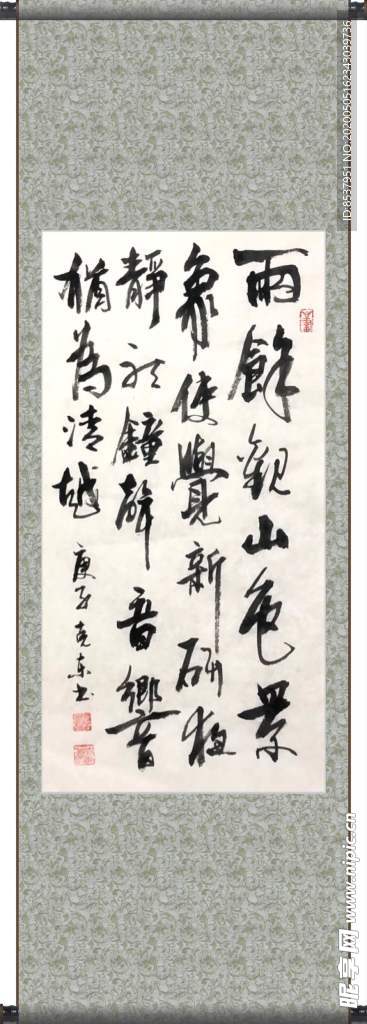 雨餘觀山色景
象便覺新研夜
靜聽鐘聲音響
猶為清越
庚子克東書
ID:8537951 NO:20200505162343039736
昵享网 www.nipic.cn